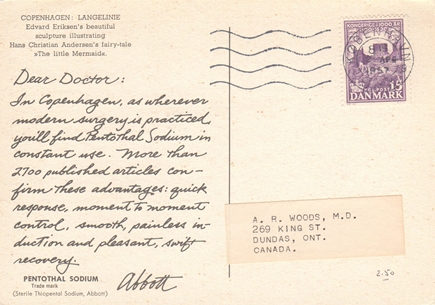 COPENHAGEN: LANGELINIE
Edvard Eriksen's beautiful
sculpture illustrating
Hans Christian Andersen's fairy-tale
»The little Mermaide.
Dear Doctor:
In Copenhagen, as wherever
modern surgery is practiced,
you'll find Pentothal Sodium in
constant use. More than
2700 published articles con-
firm these advantages: quick
response, moment to moment
control, smooth, painless in-
duction and pleasant, swift
recovery.
PENTOTHAL SODIUM
Trade mark
(Sterile Thiopental Sodium, Abbott)
Abbott
1957
15
DANMARK
A. R. WOODS, M.D.
269 KING ST.
DUNDAS, ONT.
CANADA.
2.50